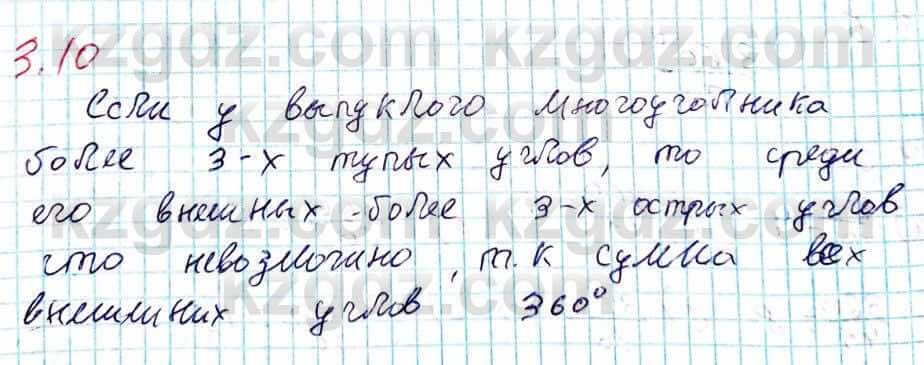 3.10
Если у выпуклого многоугольника
более 3-х тупых углов, то среди
его внешных более 3-х острых углов
что невозможно, т.к сумма всех
внешних углов 360°